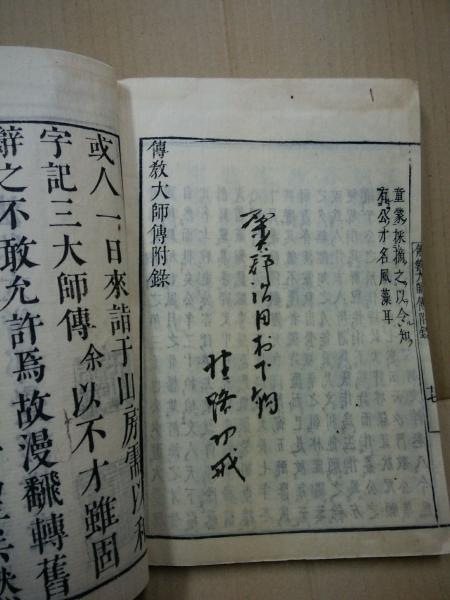 傳教大師傳附錄
童蒙採摘之以令知
有公才名風藻耳
郡治田村下鈎
傳教大師傳附錄
或人一日來請于山房需以和
字記三大師傳余以不才雖固
辭之不敢允許焉故漫飜轉舊